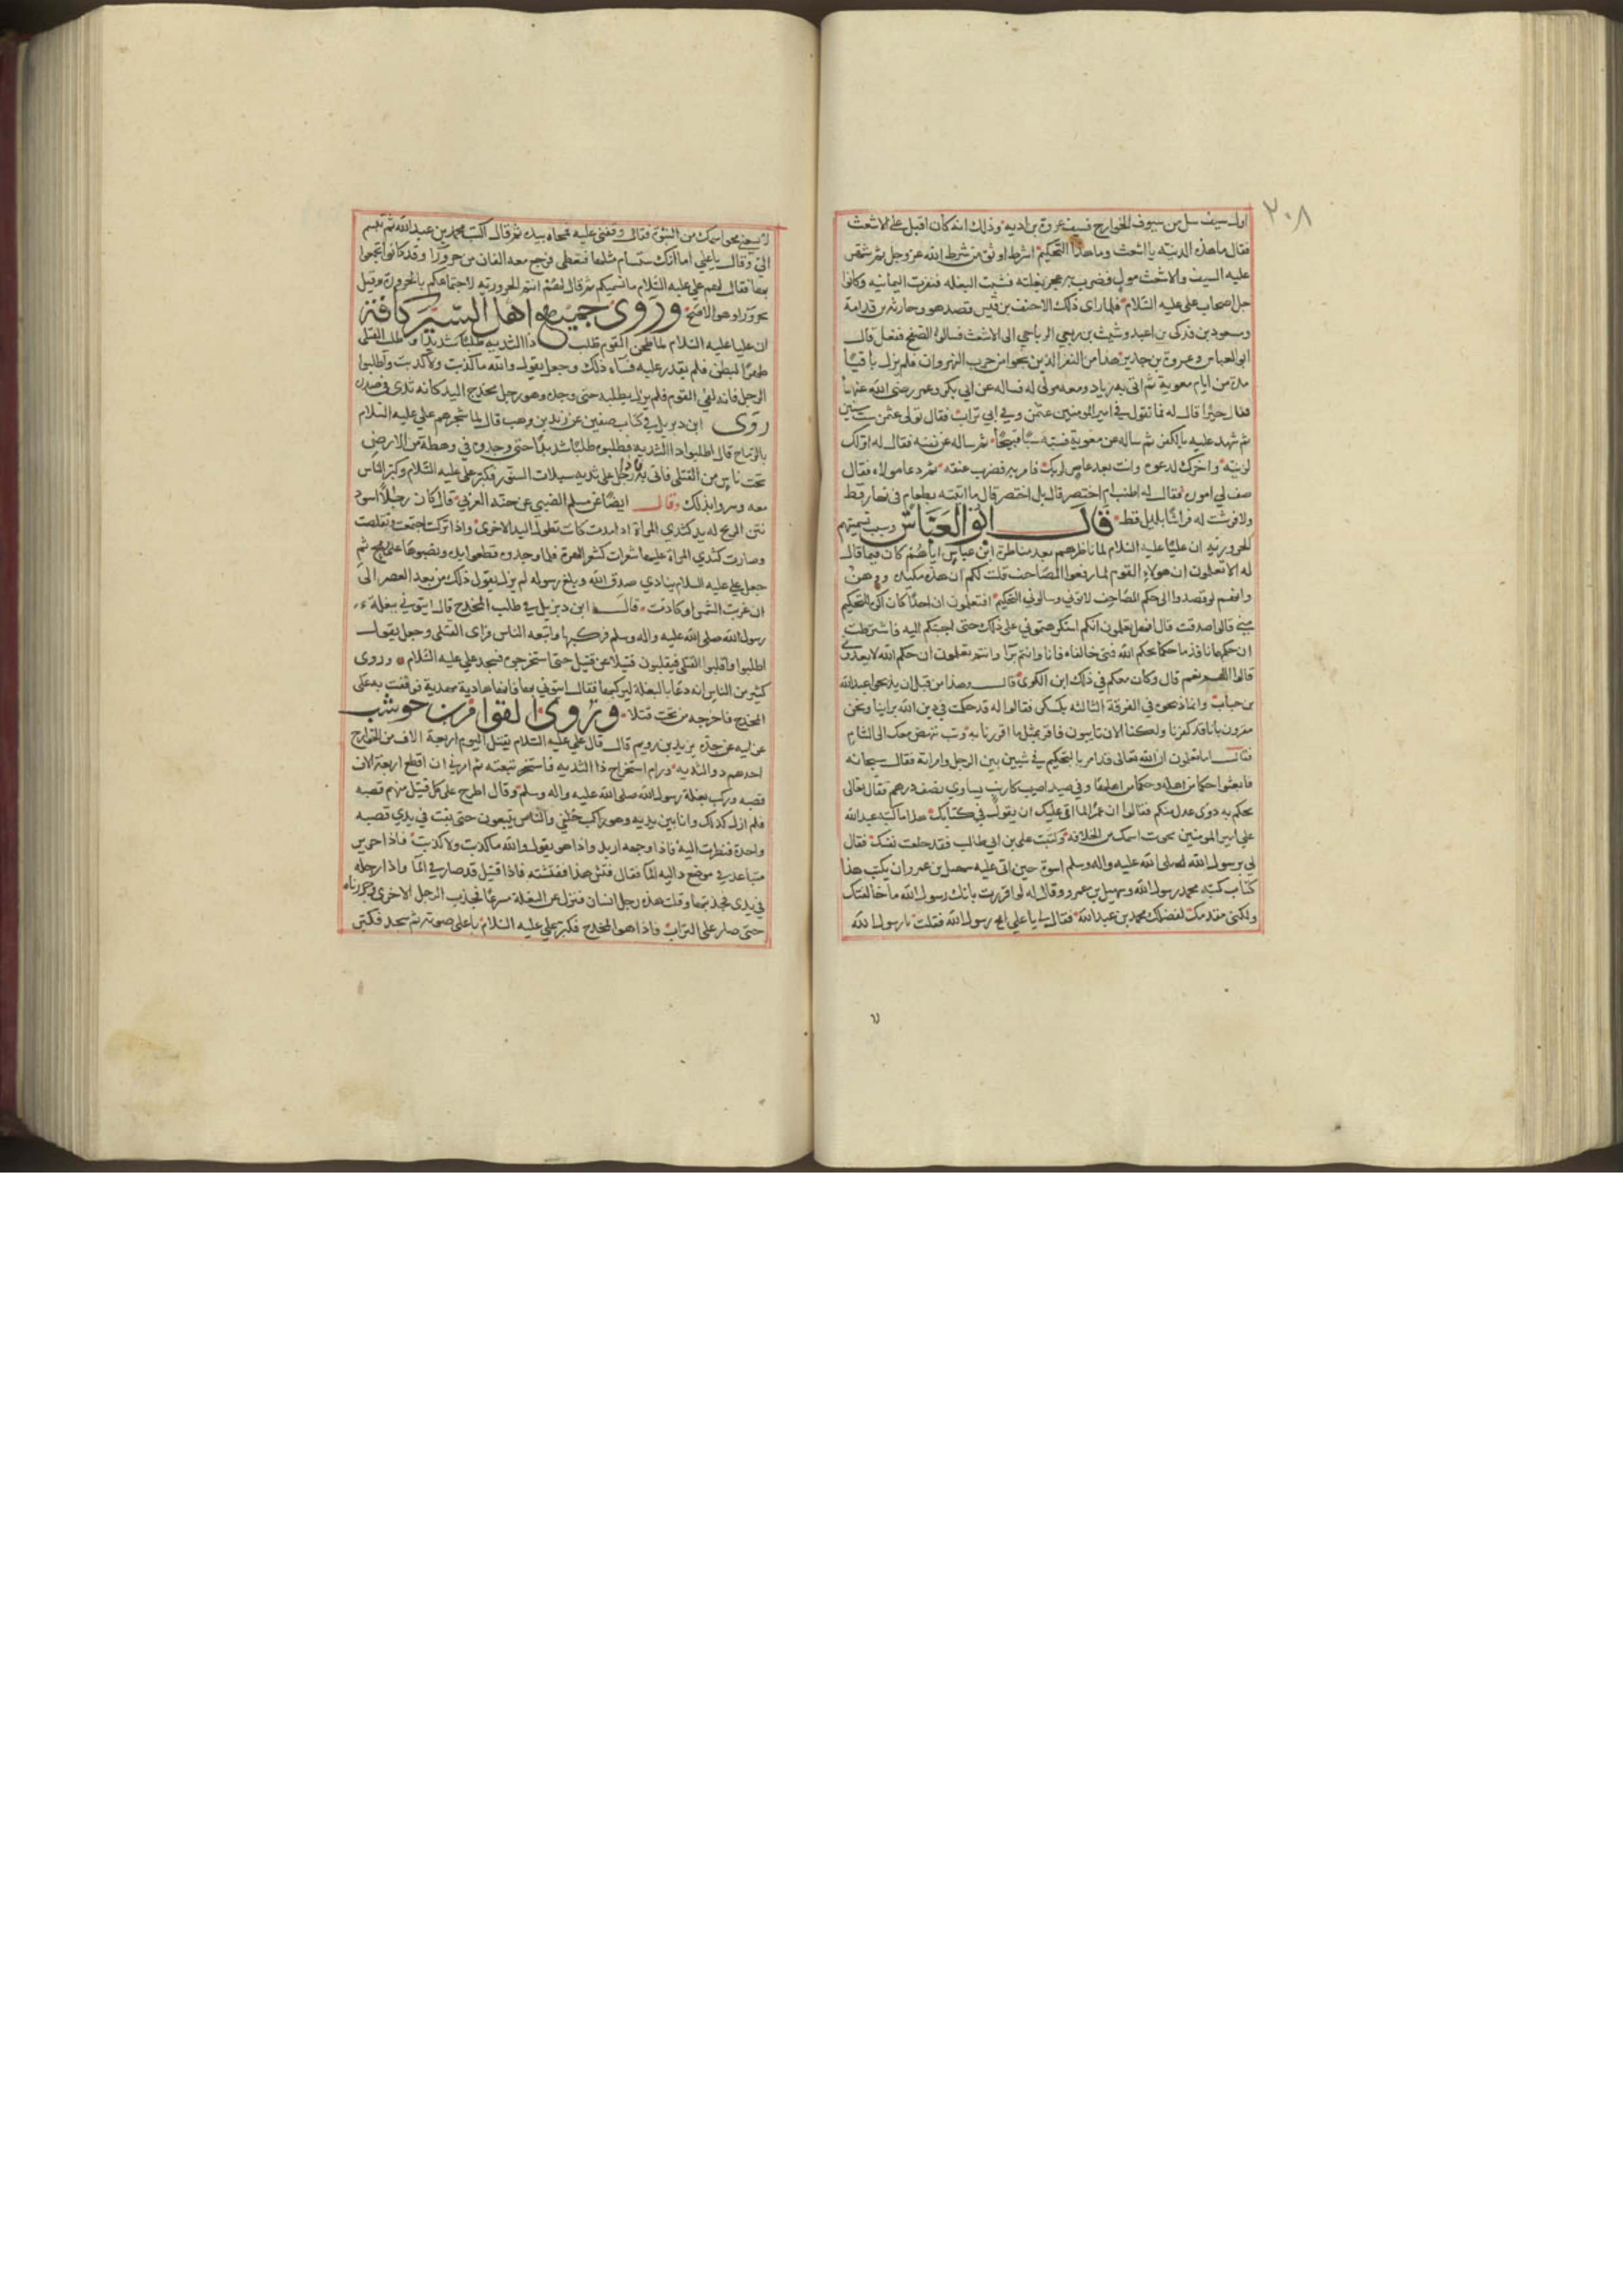 ٢٠٨
اول سيف سل من سيوف الخوارج فسيف عروة بن ادية وذلك انه كان اقبل على الاشعث
فقال ما هذه الدنيه يا اشعث وما هذا التحكيم اشرط اوثق من شرط الله عز وجل ثم شهر
عليه السيف والاشعث مول فضرب به عجز بغلته فشبت البغله فنفرت اليمانيه وكانوا
جل اصحاب على عليه السلام فلما راى ذلك الاحنف بن قيس قصد هو وحارثه بن قدامة
ومسعود بن فدكى بن اعبد وشبث بن ربعي الرياحي الى الاشعث فسالوه الصفح ففعل قال
ابو العباس وعروة بن حدير هذا من النفر الذين نجوا من حرب النهروان فلم يزل باقيا
مدة من ايام معوية ثم اتى به زياد ومعه مولى له فساله عن ابي بكر وعمر رضى الله عنهما
فقال خيرا قال له فما تقول في امير المومنين عثمن وفي ابي تراب فقال تولى عثمن ست سنين
ثم شهد عليه بالكفر ثم ساله عن معوية فسبه سبا قبيحا ثم ساله عن نفسه فقال له اولك
لزنيه واخرك لدعوه وانت بعد عاص لربك فامر به فضرب عنقه ثم دعا مولاه فقال
صف لي اموره فقال له اطنب ام اختصر قال بل اختصر قال ما اتيته بطعام في نهار قط
ولا فرشت له فراشا بليل قط قال ابو العباس وسبب تسميتهم
الحروريه ان عليا عليه السلام لما ناظرهم بعد مناظرة ابن عباس اياهم كان فيما قال
له الا تعلمون ان هولاء القوم لما رفعوا المصاحف قلت لكم ان هذه مكيده ووهن
وانهم لو قصدوا الى حكم المصاحف لاتوني وسالوني التحكيم افتعلمون ان احدا كان اكره للتحكيم
مني قالوا صدقت قال فهل تعلمون انكم استكرهتموني على ذلك حتى اجبتكم اليه فاشترطت
ان حكمهما نافذ ما حكما بحكم الله فمتى خالفاه فانا وانتم برآ وانتم تعلمون ان حكم الله لا يعدوني
قالوا اللهم نعم قال وكان معكم في ذلك ابن الكوى قال وهذا من قبل ان يذبحوا عبد الله
بن خباب وانما ذبحوه في الفرقة الثالثه بكسكر فقالوا له قد حكمت في دين الله براينا ونحن
مقرون بانا قد كفرنا ولكنا الان تايبون فاقر بمثل ما اقررنا به وتب ننهض معك الى الشام
فقال اما تعلمون ان الله تعالى قد امر بالتحكيم في شيين بين الرجل وامراته فقال سبحانه
فابعثوا حكما من اهله وحكما من اهلها وفي صيد اصيب كارنب يساوي نصف درهم فقال تعالى
يحكم به ذوى عدل منكم فقالوا ان عمرا لما ابى عليك ان يقول في كتابك هذا ما كتبه عبد الله
على امير المومنين محوت اسمك من الخلافه وكتبت على بن ابي طالب فقد خلعت نفسك فقال
لي برسول الله صلى الله عليه واله وسلم اسوة حين ابى عليه سهيل بن عمرو ان يكتب هذا
كتاب كتبه محمد رسول الله وسهيل بن عمرو وقال له لو اقررت بانك رسول الله ما خالفتك
ولكني مقدمك لفضلك محمد بن عبد الله فقال لي يا علي امح رسول الله فقلت يا رسول الله
لا تسعني محو اسمك من النبوة فقال وقفني عليه فمحاه بيده ثم قال اكتب محمد بن عبد الله ثم تبسم
الي وقال يا علي اما انك ستسام مثلها فتعطى فرجع معه الفان من حرورا وقد كانوا تجمعوا
بها فقال لهم على عليه السلام ما نسميكم ثم قال انتم الحروريه لاجتماعكم بالحرورة وقيل
بحرورا وهو الاصح وروى جميع اهل السير كافة
ان عليا عليه السلام لما طحن القوم طلب ذا الثديه طلبا شديدا وطلب القتلى
ظهرا لبطن فلم يقدر عليه فساه ذلك وجعل يقول والله ما كذبت ولا كذبت واطلبوا
الرجل فانه لفي القوم فلم يزل يطلبه حتى وجده وهو رجل مخدج اليد كانه ثدى في صدره
روى ابن ديزيل في كتاب صفين عن زيد بن وهب قال لما شجرهم على عليه السلام
بالرماح قال اطلبوا ذا الثديه فطلبوه طلبا شديدا حتى وجدوه في وهطة من الارض
تحت ناس من القتلى فاتى به رجل على ثديه سبلات السنور فكبر على عليه السلام وكبر الناس
معه وسروا بذلك وقال ايضا عن مسلم الضبي عن حبه العرني قال كان رجلا اسود
نتن الريح له يد كثدي المراة اذا مدت كانت بطول اليد الاخرى واذا تركت اجتمعت وتقلصت
وصارت كثدي المراة عليها شعرات كشوارب الهرة فلما وجدوه قطعوا يده ونصبوها على رمح ثم
جعل على عليه السلام ينادي صدق الله وبلغ رسوله لم يزل يقول ذلك من بعد العصر الى
ان غربت الشمس او كادت قال ابن ديزيل في طلب المخدج قال ايتوني ببغلة
رسول الله صلى الله عليه واله وسلم فركبها واتبعه الناس فراى القتلى وجعل يقول
اطلبوا واقلبوا القتلى فيقلبون قتيلا عن قتيل حتى استخرجوه فسجد على عليه السلام وروى
كثير من الناس انه دعا بالبغلة ليركبها فقال ايتوني بها فانها هادية مهدية فوقفت به على
المخدج فاخرجه من تحت قتلا وروى العوام بن حوشب
عن ابيه عن جده يزيد بن رويم قال قال على عليه السلام يقتل اليوم اربعة الاف من الخوارج
احدهم ذو الثديه ورام استخراج ذا الثديه فاستخر تبعته ثم امرني ان اقطع اربعة الاف
قصبه وركب بغلة رسول الله صلى الله عليه واله وسلم وقال اطرح على كل قتيل منهم قصبه
فلم ازل كذلك وانا بين يديه وهو راكب خلفي والناس يتبعون حتى بقيت في يدي قصبه
واحدة فنظرت اليه فاذا وجهه اربد واذا هو يقول والله ما كذبت ولا كذبت فاذا خرير
في موضع دالية الما فقال فتش هذا ففتشته فاذا قتيل قد صار في الما واذا رجله
في يدي فجذبتها وقلت هذه رجل انسان فنزل عن البغلة سرعا فجذب الرجل الاخرى وجررناه
حتى صار على التراب فاذا هو المخدج فكبر على عليه السلام باعلى صوته ثم سجد فكبر